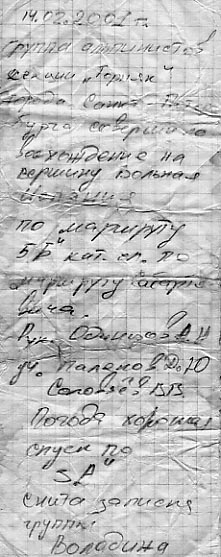 14.02.2001 г.
группа альпинистов
секции "Горняк"
города Санкт-Петер
бурга совершила
восхождение на
вершину Вольная
Испания
по маршруту
5Б" кат. сл. по
маршруту
вича.
Рук. Одинцов А.Н
уч. Пален Д.Ю
Соловьёв В.В.
Погода хорошая
спуск по
5А"
снята записка
группы
Володина